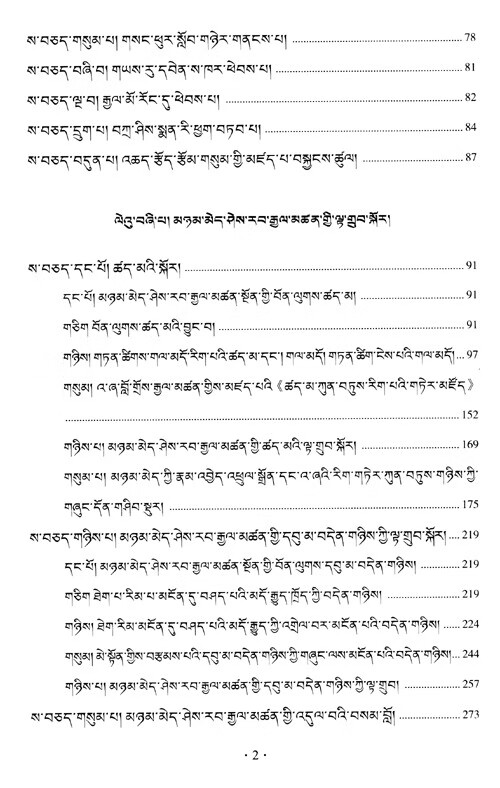 ས་བཅད་གསུམ་པ། གསང་ཕུར་སློབ་གཉེར་གནངས་པ། 78
ས་བཅད་བཞི་བ། གཡས་རུ་དབེན་ས་ཁར་ཕེབས་པ། 81
ས་བཅད་ལྔ་བ། རྒྱལ་མོ་རོང་དུ་ཕེབས་པ། 82
ས་བཅད་དྲུག་པ། བཀྲ་ཤིས་སྨན་རི་ཕྱག་བཏབ་པ། 84
ས་བཅད་བདུན་པ། འཆད་རྩོད་རྩོམ་གསུམ་གྱི་མཛད་པ་བསྐྱངས་ཚུལ། 87
ལེའུ་བཞི་པ། མཉམ་མེད་ཤེས་རབ་རྒྱལ་མཚན་གྱི་ལྟ་གྲུབ་སྐོར།
ས་བཅད་དང་པོ། ཚད་མའི་སྐོར། 91
དང་པོ། མཉམ་མེད་ཤེས་རབ་རྒྱལ་མཚན་སྔོན་གྱི་བོན་ལུགས་ཚད་མ། 91
གཅིག བོན་ལུགས་ཚད་མའི་བྱུང་བ། 91
གཉིས། གཏན་ཚིགས་གལ་མདོ་རིག་པའི་ཚད་མ་དང་། གལ་མདོ། གཏན་ཚིག་ངེས་པའི་གལ་མདོ། 97
གསུམ། འ་ཞ་བློ་གྲོས་རྒྱལ་མཚན་གྱིས་མཛད་པའི《ཚད་མ་ཀུན་བཏུས་རིག་པའི་གཏེར་མཛོད》
152
གཉིས་པ། མཉམ་མེད་ཤེས་རབ་རྒྱལ་མཚན་གྱི་ཚད་མའི་ལྟ་གྲུབ་སྐོར། 169
གསུམ་པ། མཉམ་མེད་ཀྱི་རྣམ་འབྱེད་འཕྲུལ་སྒྲོན་དང་འ་ཞའི་རིག་གཏེར་ཀུན་བཏུས་གཉིས་ཀྱི་
གཞུང་དོན་གཤིབ་སྡུར། 175
ས་བཅད་གཉིས་པ། མཉམ་མེད་ཤེས་རབ་རྒྱལ་མཚན་གྱི་དབུ་མ་བདེན་གཉིས་ཀྱི་ལྟ་གྲུབ་སྐོར། 219
དང་པོ། མཉམ་མེད་ཤེས་རབ་རྒྱལ་མཚན་སྔོན་གྱི་བོན་ལུགས་དབུ་མ་བདེན་གཉིས། 219
གཅིག ཐེག་པ་རིམ་པ་མངོན་དུ་བཤད་པའི་མདོ་རྒྱུད་ཁྲོད་ཀྱི་བདེན་གཉིས། 219
གཉིས། ཐེག་རིམ་མངོན་དུ་བཤད་པའི་མདོ་རྒྱུད་ཀྱི་འགྲེལ་བར་མངོན་པའི་བདེན་གཉིས། 224
གསུམ། མེ་སྟོན་གྱིས་བརྩམས་པའི་དབུ་མ་བདེན་གཉིས་ཀྱི་གཞུང་ལས་མངོན་པའི་བདེན་གཉིས། 244
གཉིས་པ། མཉམ་མེད་ཤེས་རབ་རྒྱལ་མཚན་གྱི་དབུ་མ་བདེན་གཉིས་ཀྱི་ལྟ་གྲུབ། 257
ས་བཅད་གསུམ་པ། མཉམ་མེད་ཤེས་རབ་རྒྱལ་མཚན་གྱི་འདུལ་བའི་བསམ་བློ། 273
· 2 ·